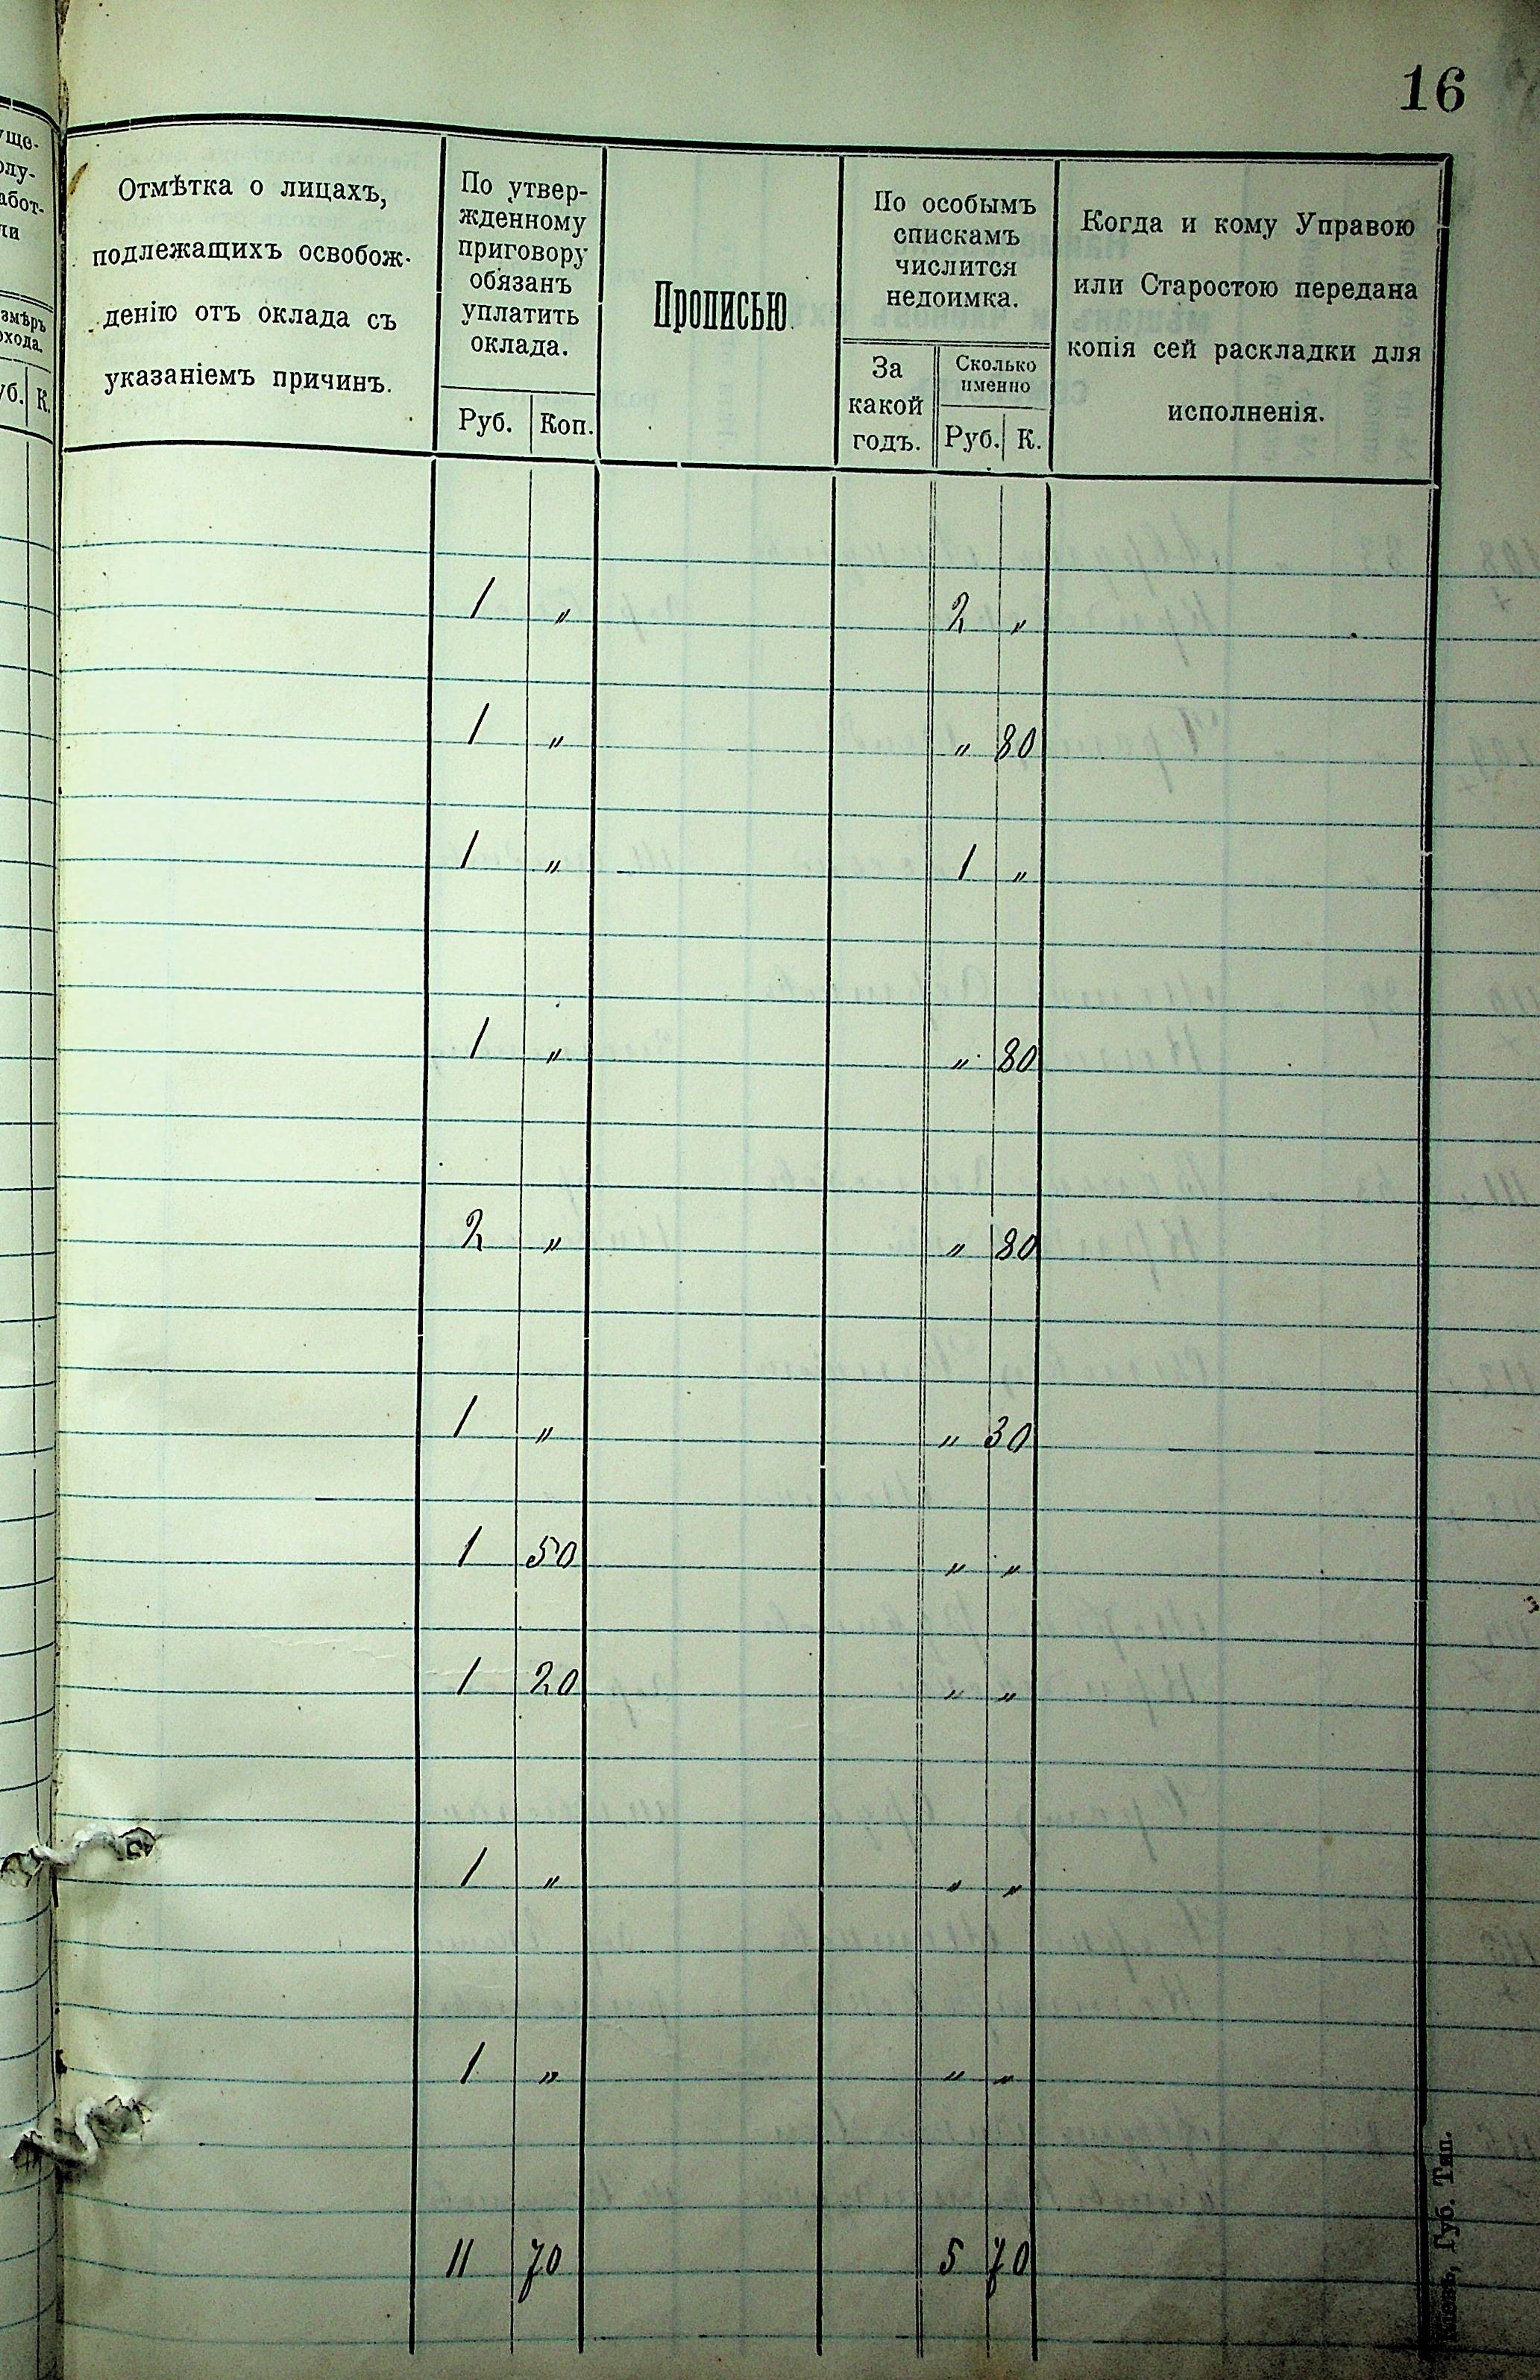 16
Отмѣтка о лицахъ,
подлежащихъ освобож-
денію отъ оклада съ
указаніемъ причинъ.
По утвер-
жденному
приговору
обязанъ
уплатить
оклада.
Руб. Коп.
Прописью.
По особымъ
спискамъ
числится
недоимка.
За
какой
годъ.
Сколько
именно
Руб. К.
Когда и кому Управою
или Старостою передана
копія сей раскладки для
исполненія.
1 " 2 "
1 " " 80
1 " 1 "
1 " " 80
2 " " 80
1 " " 30
1 50 " "
1 20 " "
1 " " "
1 " " "
11 70 5 70
Губ. Тип.